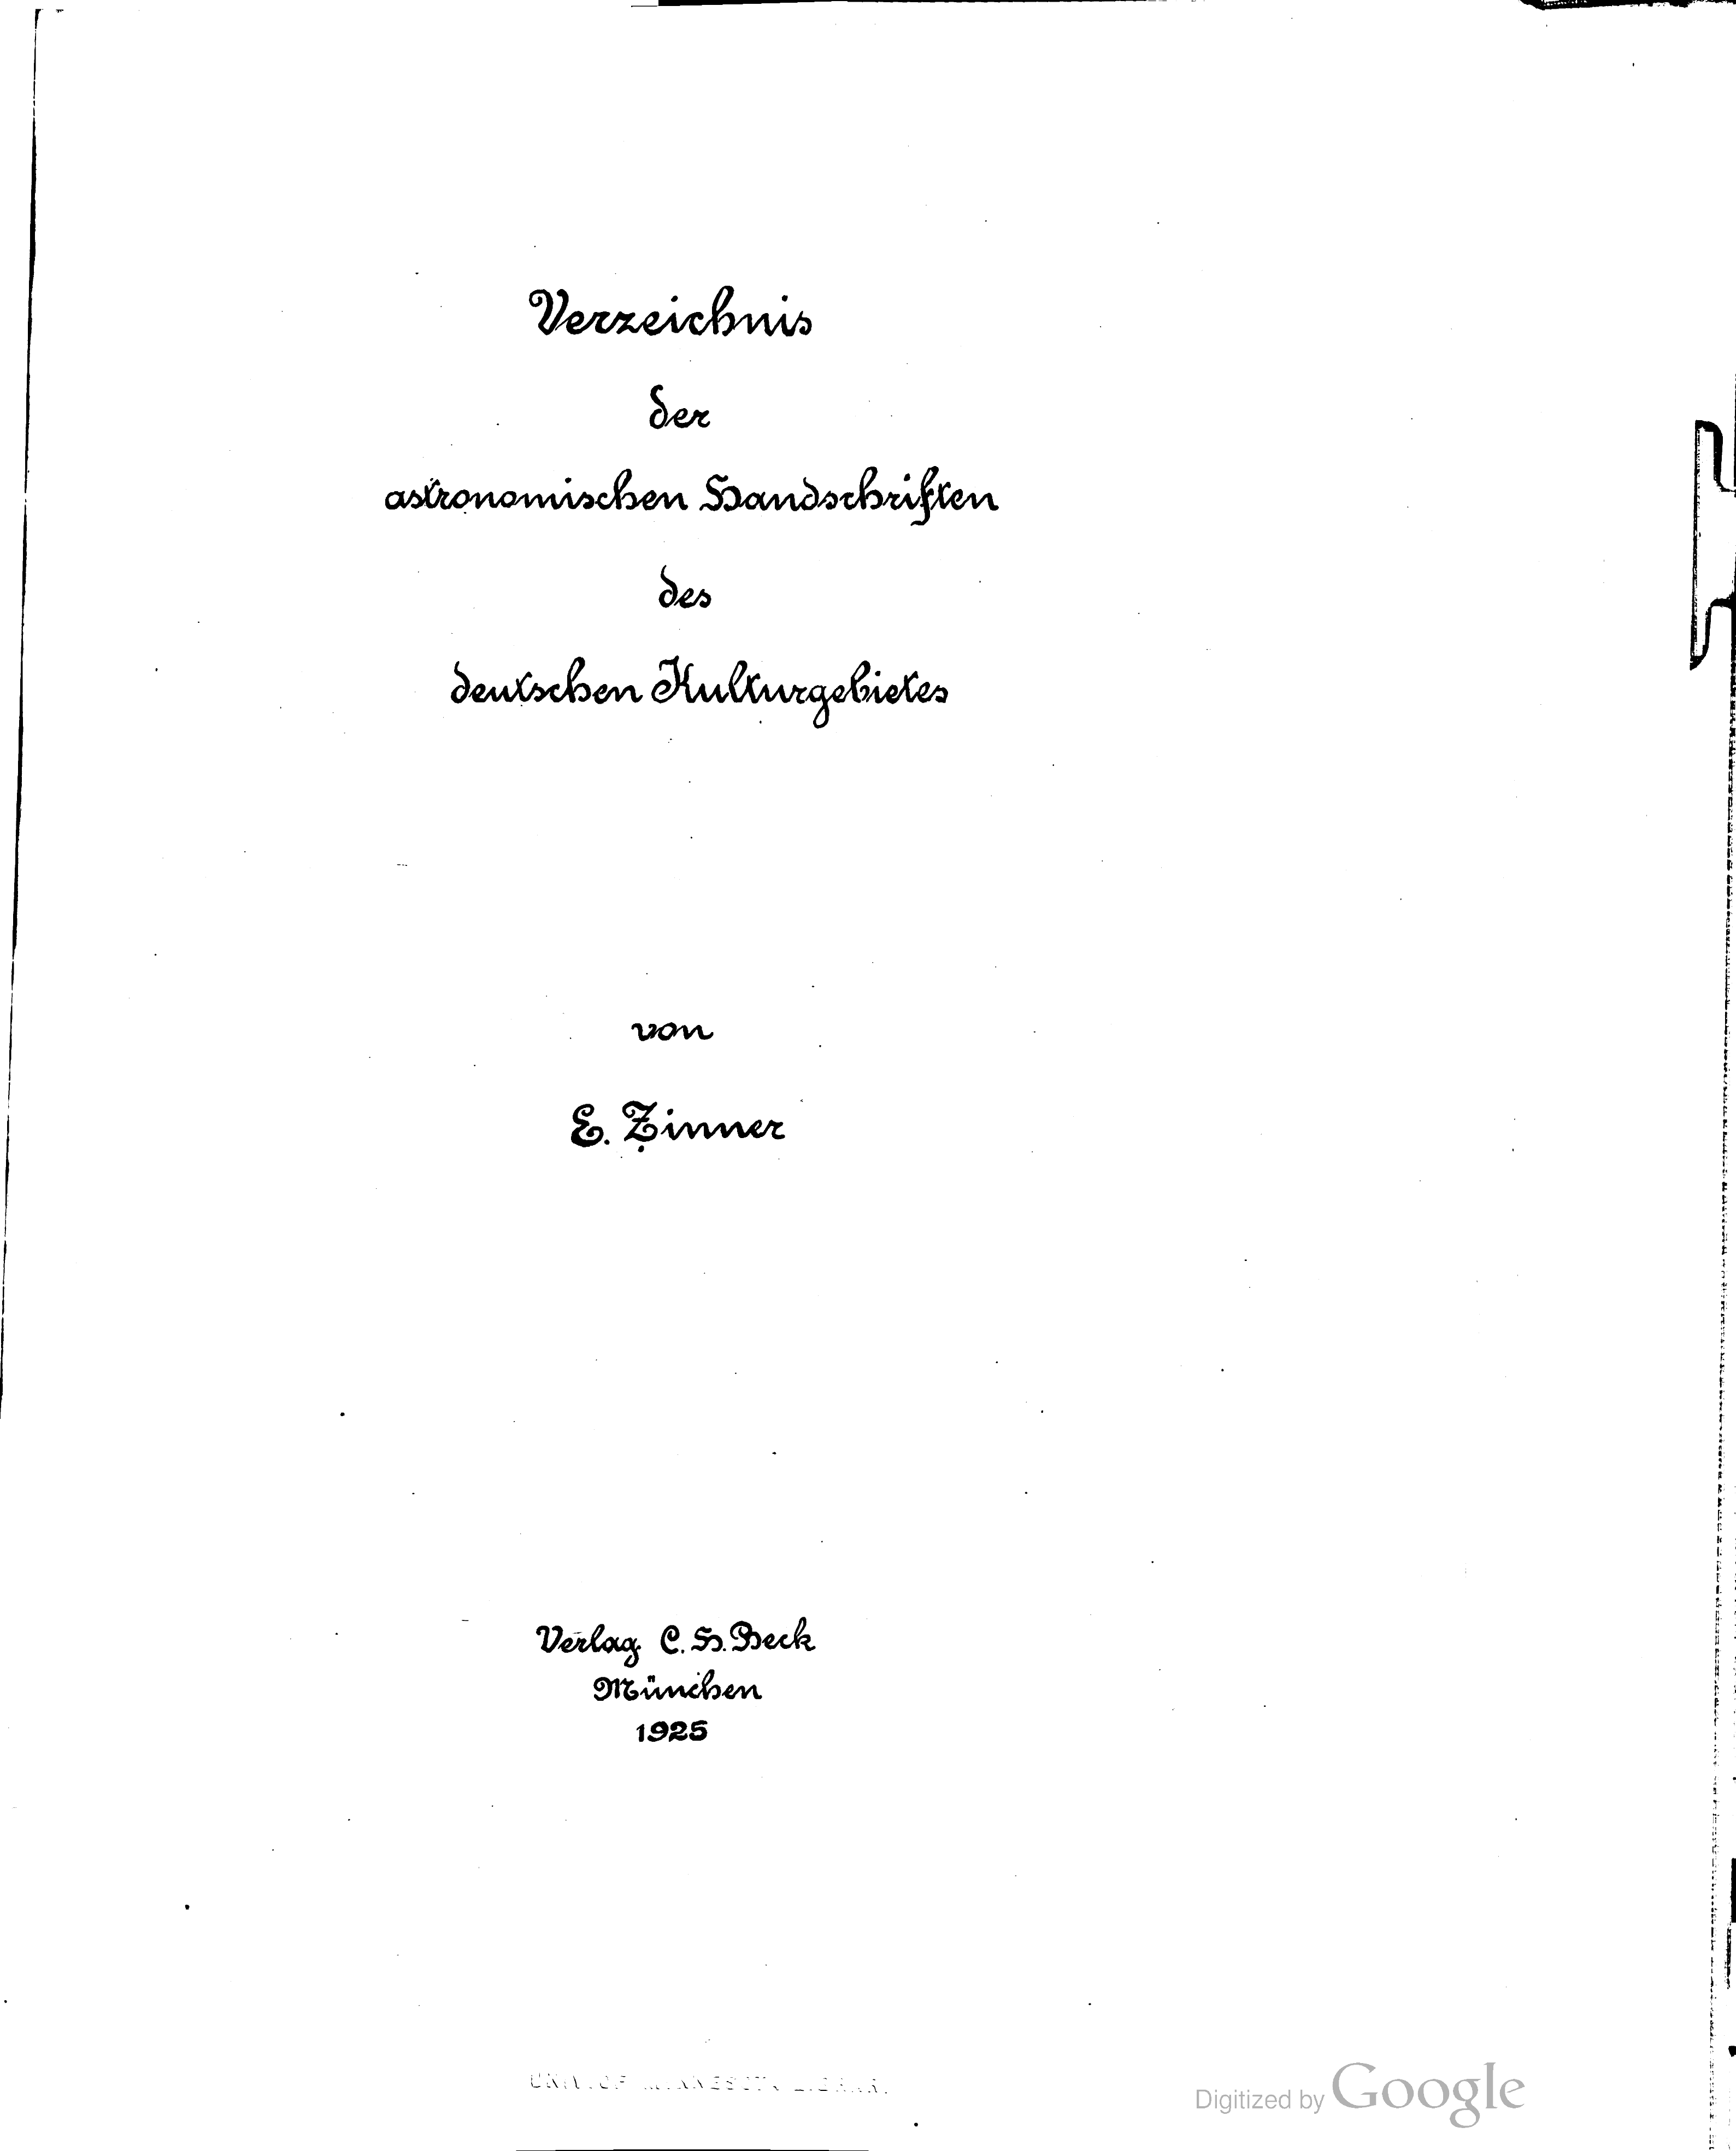 Verzeichnis
der
astronomischen Handschriften
des
deutschen Kulturgebietes
von
E. Zinner
Verlag C. H. Beck
München
1925
Digitized by Google